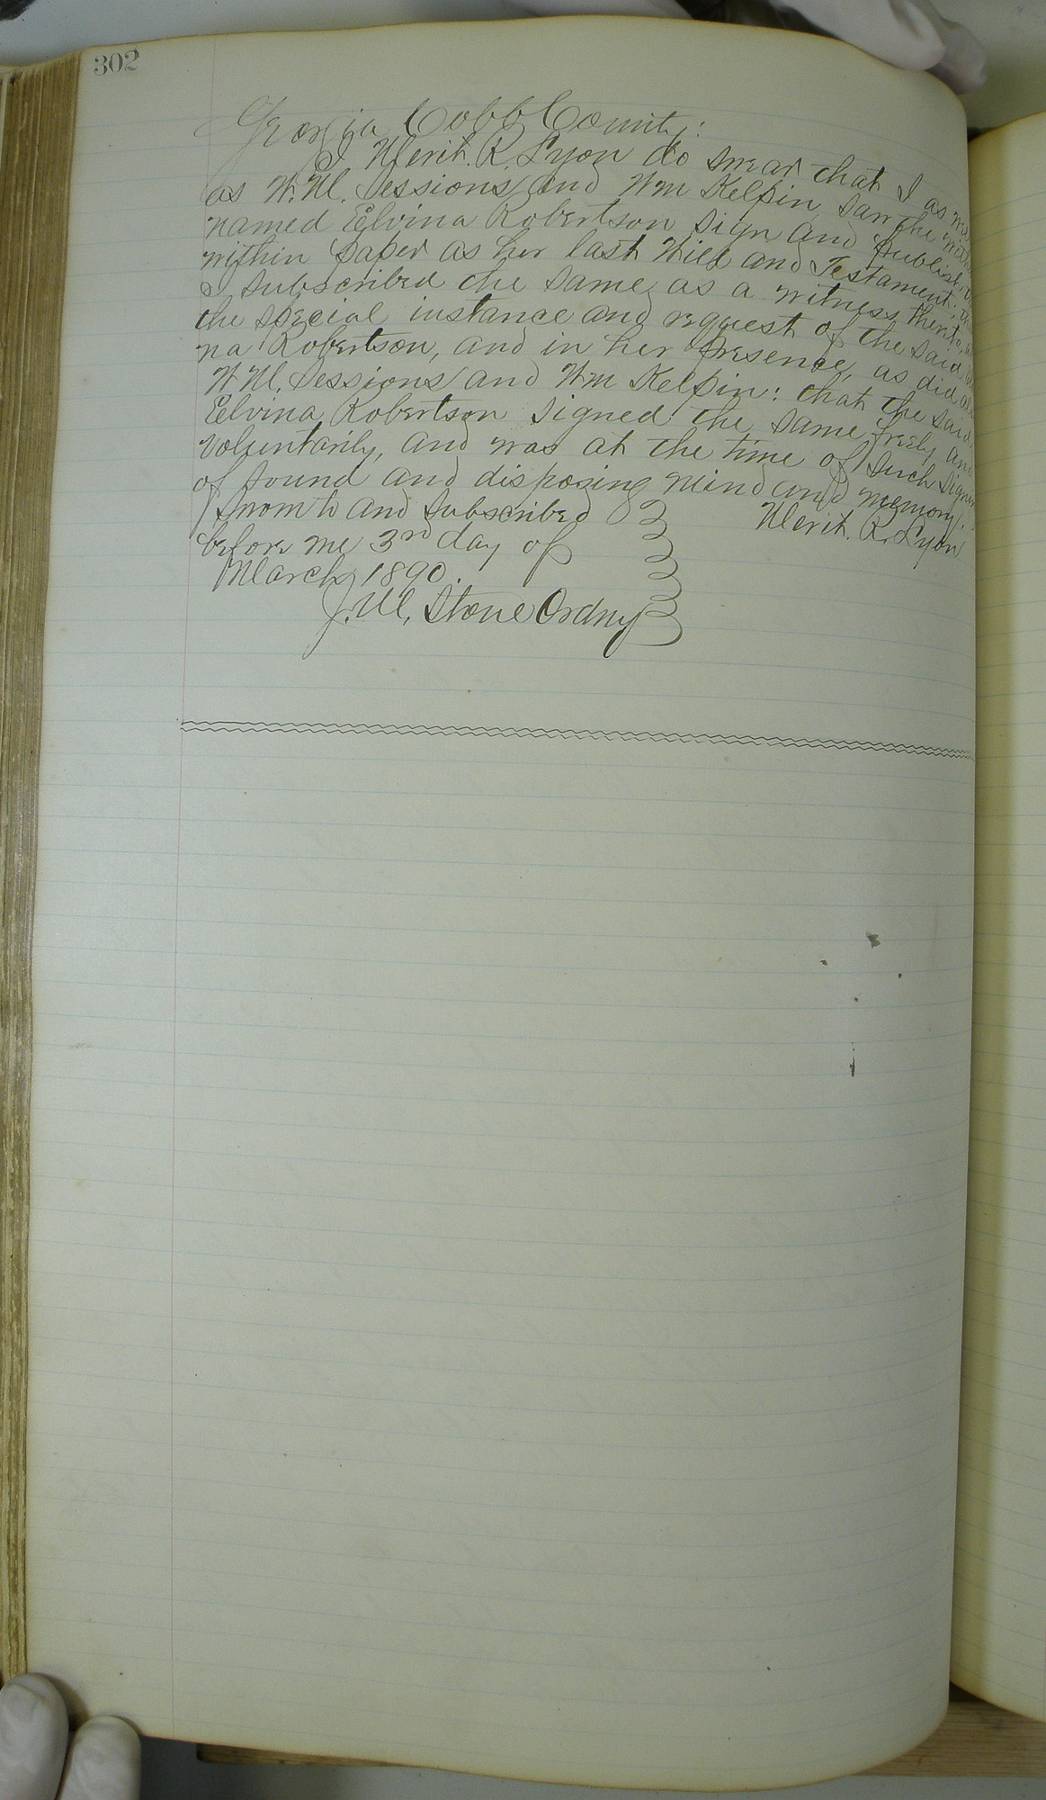 302
Georgia Cobb County:
I, Merit. R. Lyon do swear that I as
as W. M. Sessions and Wm Kelpin saw the
named Elvina Robertson sign and publish
within paper as her last Will and Testament,
I subscribed the same as a witness thereto,
the special instance and request of the said
na Robertson, and in her presence, as did
W. M. Sessions and Wm Kelpin: that the said
Elvina Robertson signed the same freely and
voluntarily, and was at the time of such
of sound and disposing mind and memory.
Sworn to and Subscribed
Merit. R. Lyon
before me 3rd day of
March 1890.
J. M. Stone Ordny